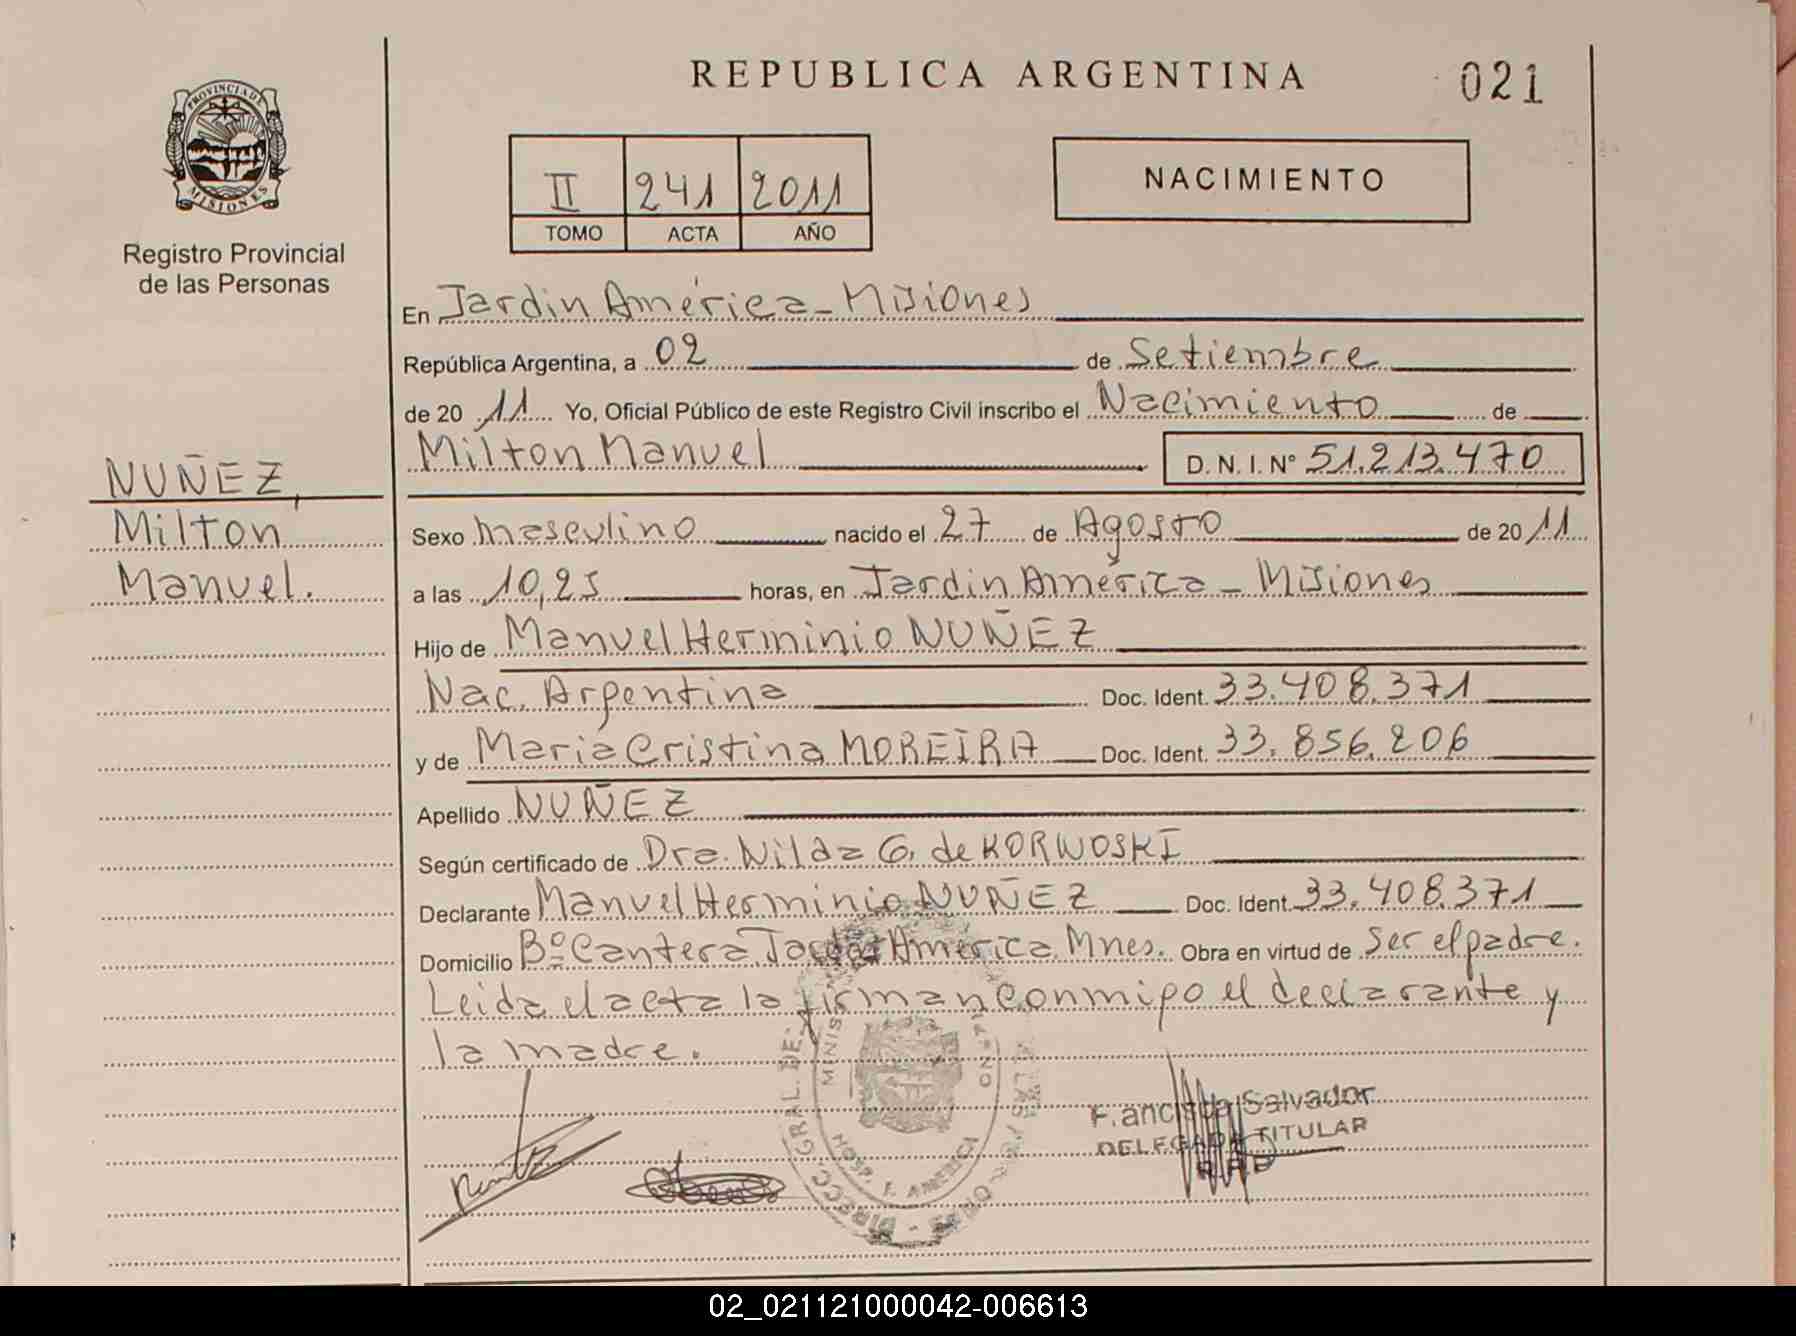 REPUBLICA ARGENTINA
021
PROVINCIA DE
MISIONES
Registro Provincial
de las Personas
II 241 2011
TOMO ACTA AÑO
NACIMIENTO
En Jardin América - Misiones
República Argentina, a 02 de Setiembre
de 20 11 Yo, Oficial Público de este Registro Civil inscribo el Nacimiento de
Milton Manuel D. N. I. N° 51.213.470
NUÑEZ,
Milton
Manuel.
Sexo masculino nacido el 27 de Agosto de 20 11
a las 10,25 horas, en Jardin América - Misiones
Hijo de Manuel Herminio NUÑEZ
Nac. Argentina Doc. Ident. 33.408.371
y de Maria Cristina MOREIRA Doc. Ident. 33.856.206
Apellido NUÑEZ
Según certificado de Dra. Nilda G. de KORWOSKI
Declarante Manuel Herminio NUÑEZ Doc. Ident. 33.408.371
Domicilio Bº Cantera Jardin America Mnes. Obra en virtud de ser el padre.
Leida el acta la firman conmigo el declarante y
la madre.
DIRECC. GRAL. DE
HOSP. J. AMERICA
Salvador
DELEGADA TITULAR
R.P.P
02_021121000042-006613